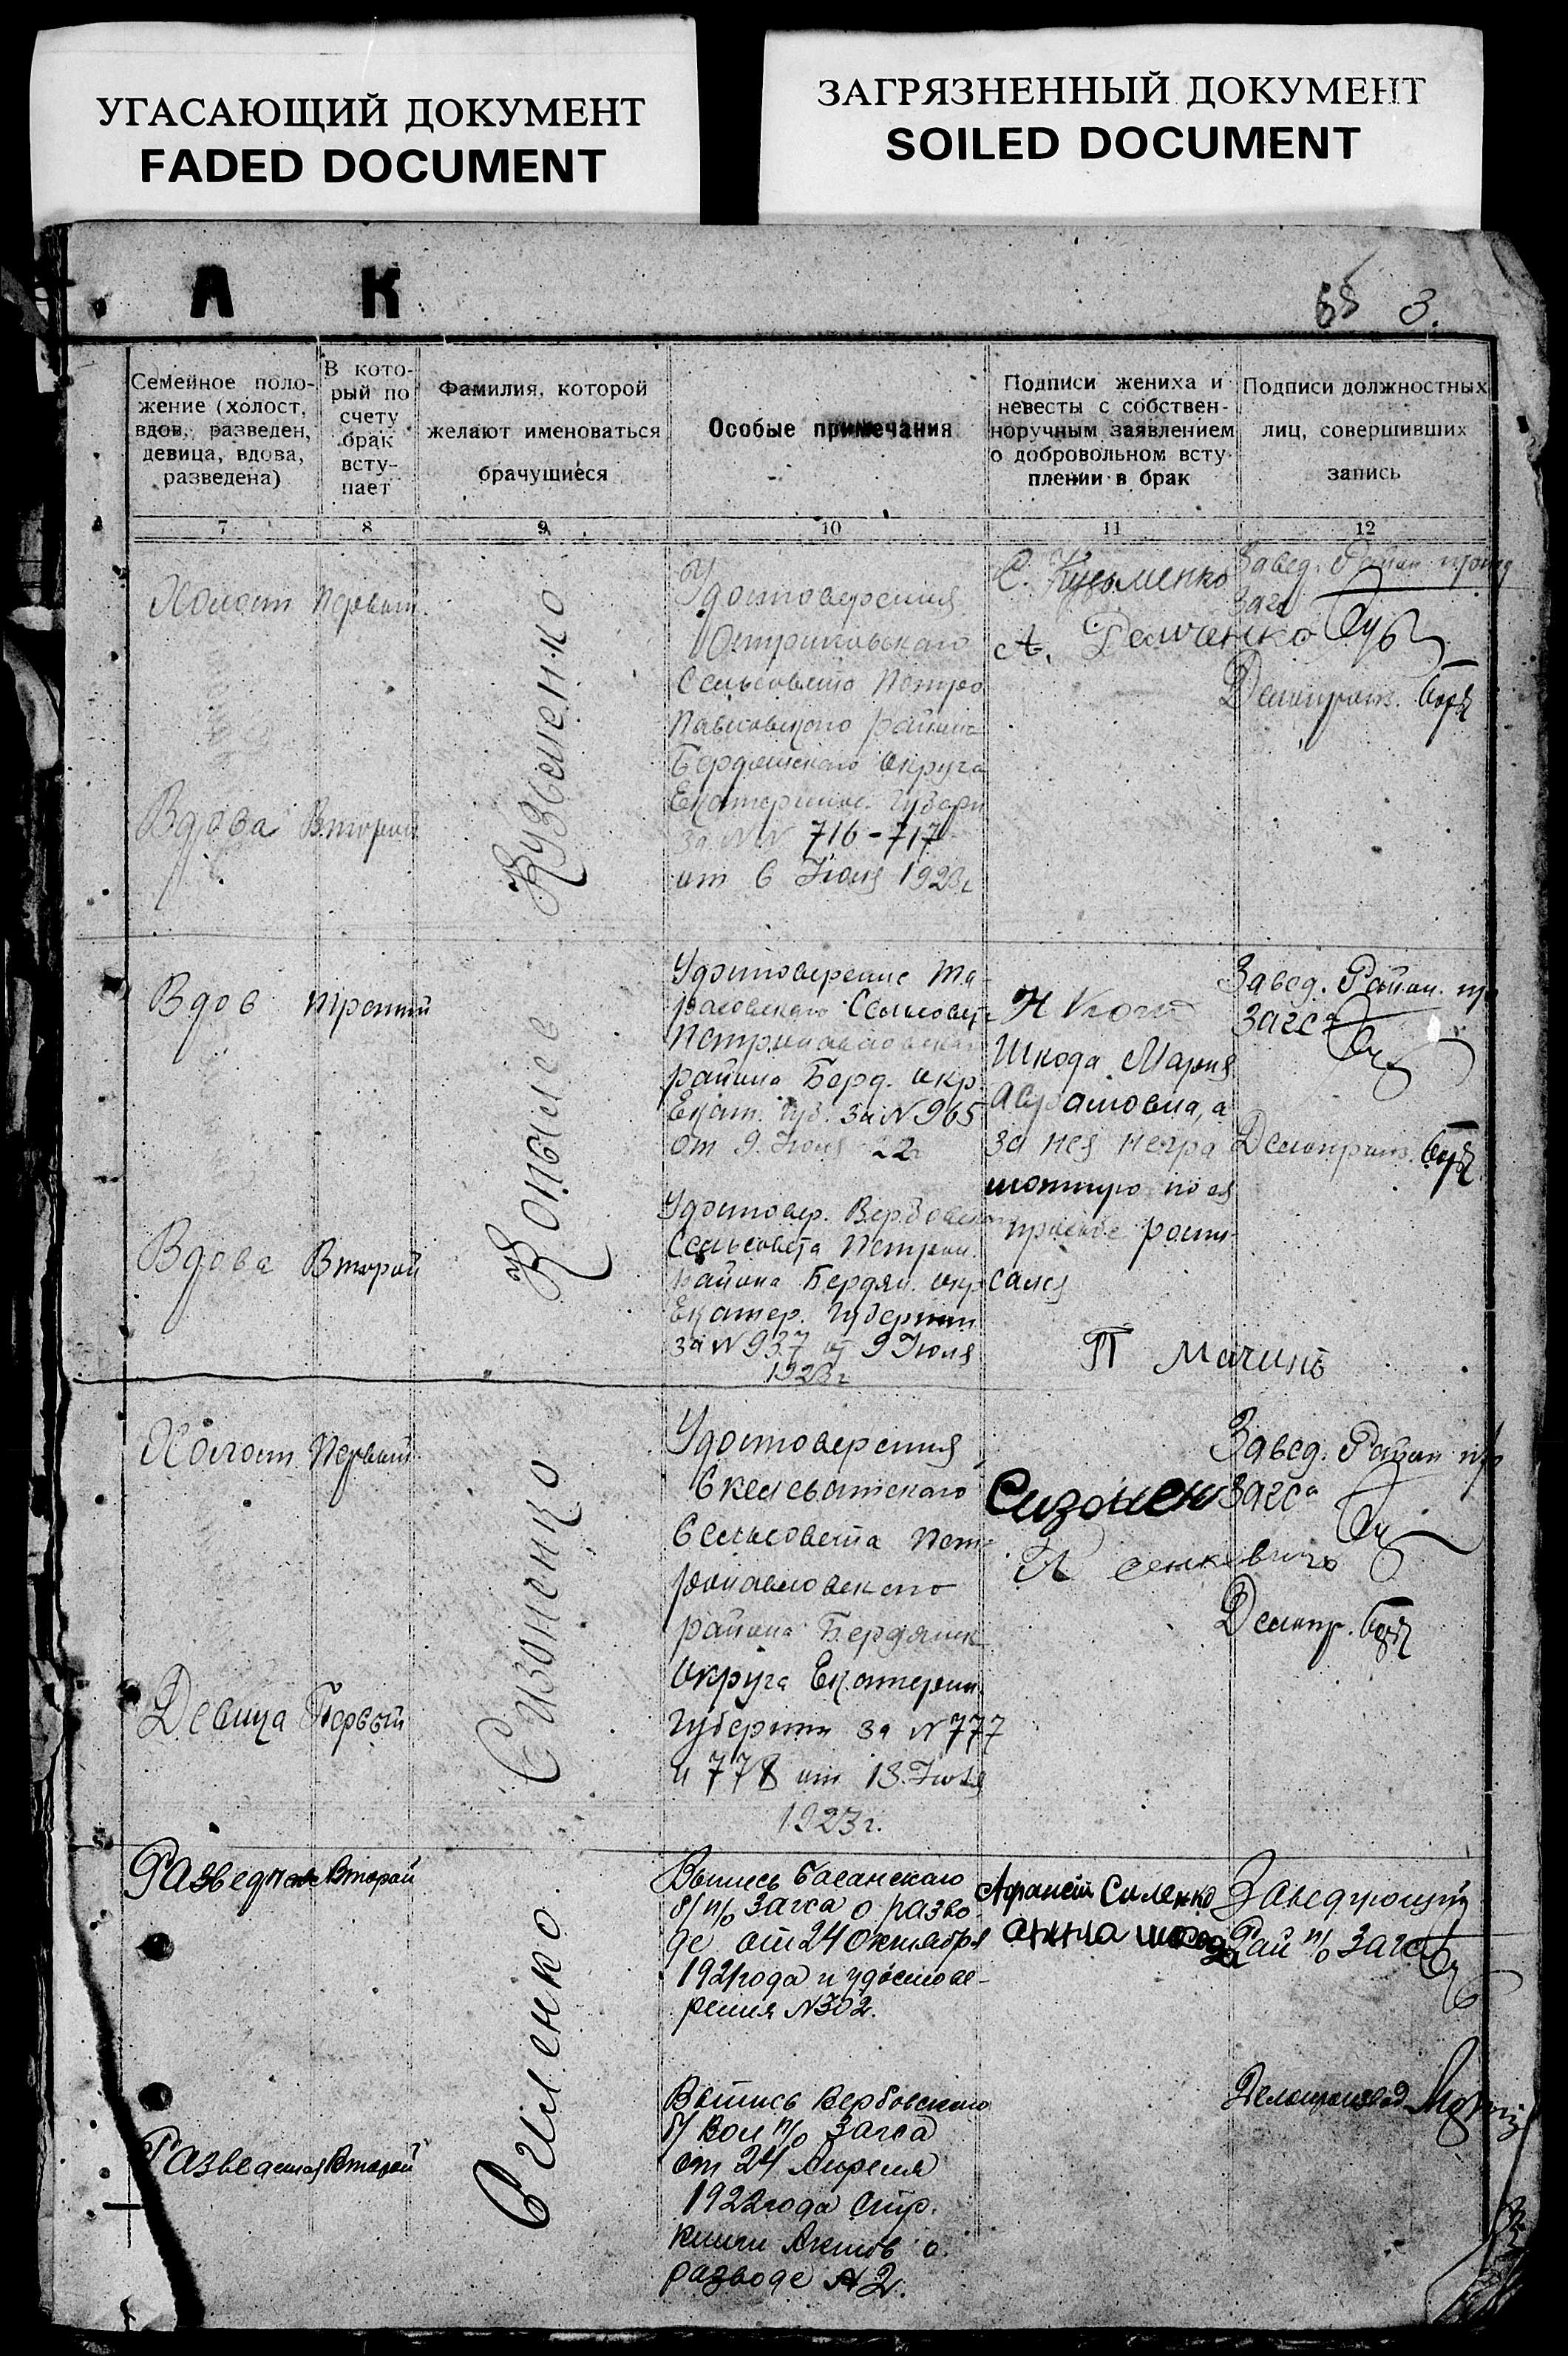 УГАСАЮЩИЙ ДОКУМЕНТ
FADED DOCUMENT
ЗАГРЯЗНЕННЫЙ ДОКУМЕНТ
SOILED DOCUMENT
А К
65 3.
Семейное поло-
жение (холост,
вдов, разведен,
девица, вдова,
разведена)
В кото-
рый по
счету
брак
всту-
пает
Фамилия, которой
желают именоваться
брачущиеся
Особые примечания
Подписи жениха и
невесты с собствен-
норучным заявлением
о добровольном всту-
плении в брак
Подписи должностных
лиц, совершивших
запись
7 8 9 10 11 12
Холост Первый
Вдова Второй
Кузьменко
Удостоверения
Сельсовета Петро
Павловского района
Бердянского Округа
Екатеринос. Губерн
за NN 716-717
от 6 Июля 1923г
С. Кузьменко
А.
Завед. Район
Загс
Делопроиз.
Вдов третий
Вдова Второй
Копылев
Удостоверение
Сельсовет
района Берд. окр.
Екат. Губ. за N 965
от 9 Июля 22г
Удостовер. Вербовск
Сельсовета Петроп.
района Бердян. окр
Екатер. Губернии
за N 937 от 9 Июля
1923г
Шкода Мария
Абрамовна, а
за нея негра
мотную по ея
просьбе распи-
сался
П Мачинъ
Завед. Район.
Загса
Делопроиз.
Холост Первый
Девица Первый
Сизоненко
Удостоверения
Скелеватского
Сельсовета Пет-
ропавловского
района Бердянск
Округа Екатерин.
Губернии за N 777
и 778 от 13 Июля
1923г.
Сизонен
Завед. Район
Загса
Делопр.
Разведен Второй
Разведенная Второй
Силенко
Выпись Басанского
б/ п/о Загса о разво-
де от 24 Октября
1921 года и удостове-
рения N302.
Выпись Вербовского
б/ Вол п/о Загса
от 24 Апреля
1922 года Стр.
книги Актов о
разводе N 2.
Афанасий Силенко
Анна
Заведующий
Рай п/о Загс
Делопроизвод